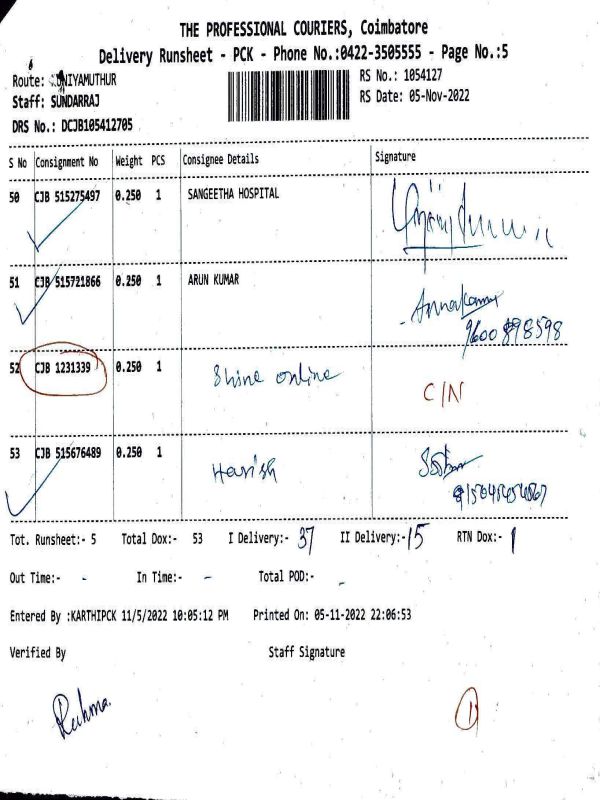 THE PROFESSIONAL COURIERS, Coimbatore
Delivery Runsheet - PCK - Phone No.:0422-3505555 - Page No.:5
Route: KUNIYAMUTHUR
RS No.: 1054127
Staff: SUNDARRAJ
RS Date: 05-Nov-2022
DRS No.: DCJB105412705
S No Consignment No Weight PCS Consignee Details Signature
50 CJB 515275497 0.250 1 SANGEETHA HOSPITAL
51 CJB 515721866 0.250 1 ARUN KUMAR
9600898598
52 CJB 1231339 0.250 1 Shine online C/N
53 CJB 515676489 0.250 1 Harish
Tot. Runsheet:- 5 Total Dox:- 53 I Delivery:- 37 II Delivery:- 15 RTN Dox:- 1
Out Time:- - In Time:- - Total POD:- -
Entered By :KARTHIPCK 11/5/2022 10:05:12 PM Printed On: 05-11-2022 22:06:53
Verified By Staff Signature
1